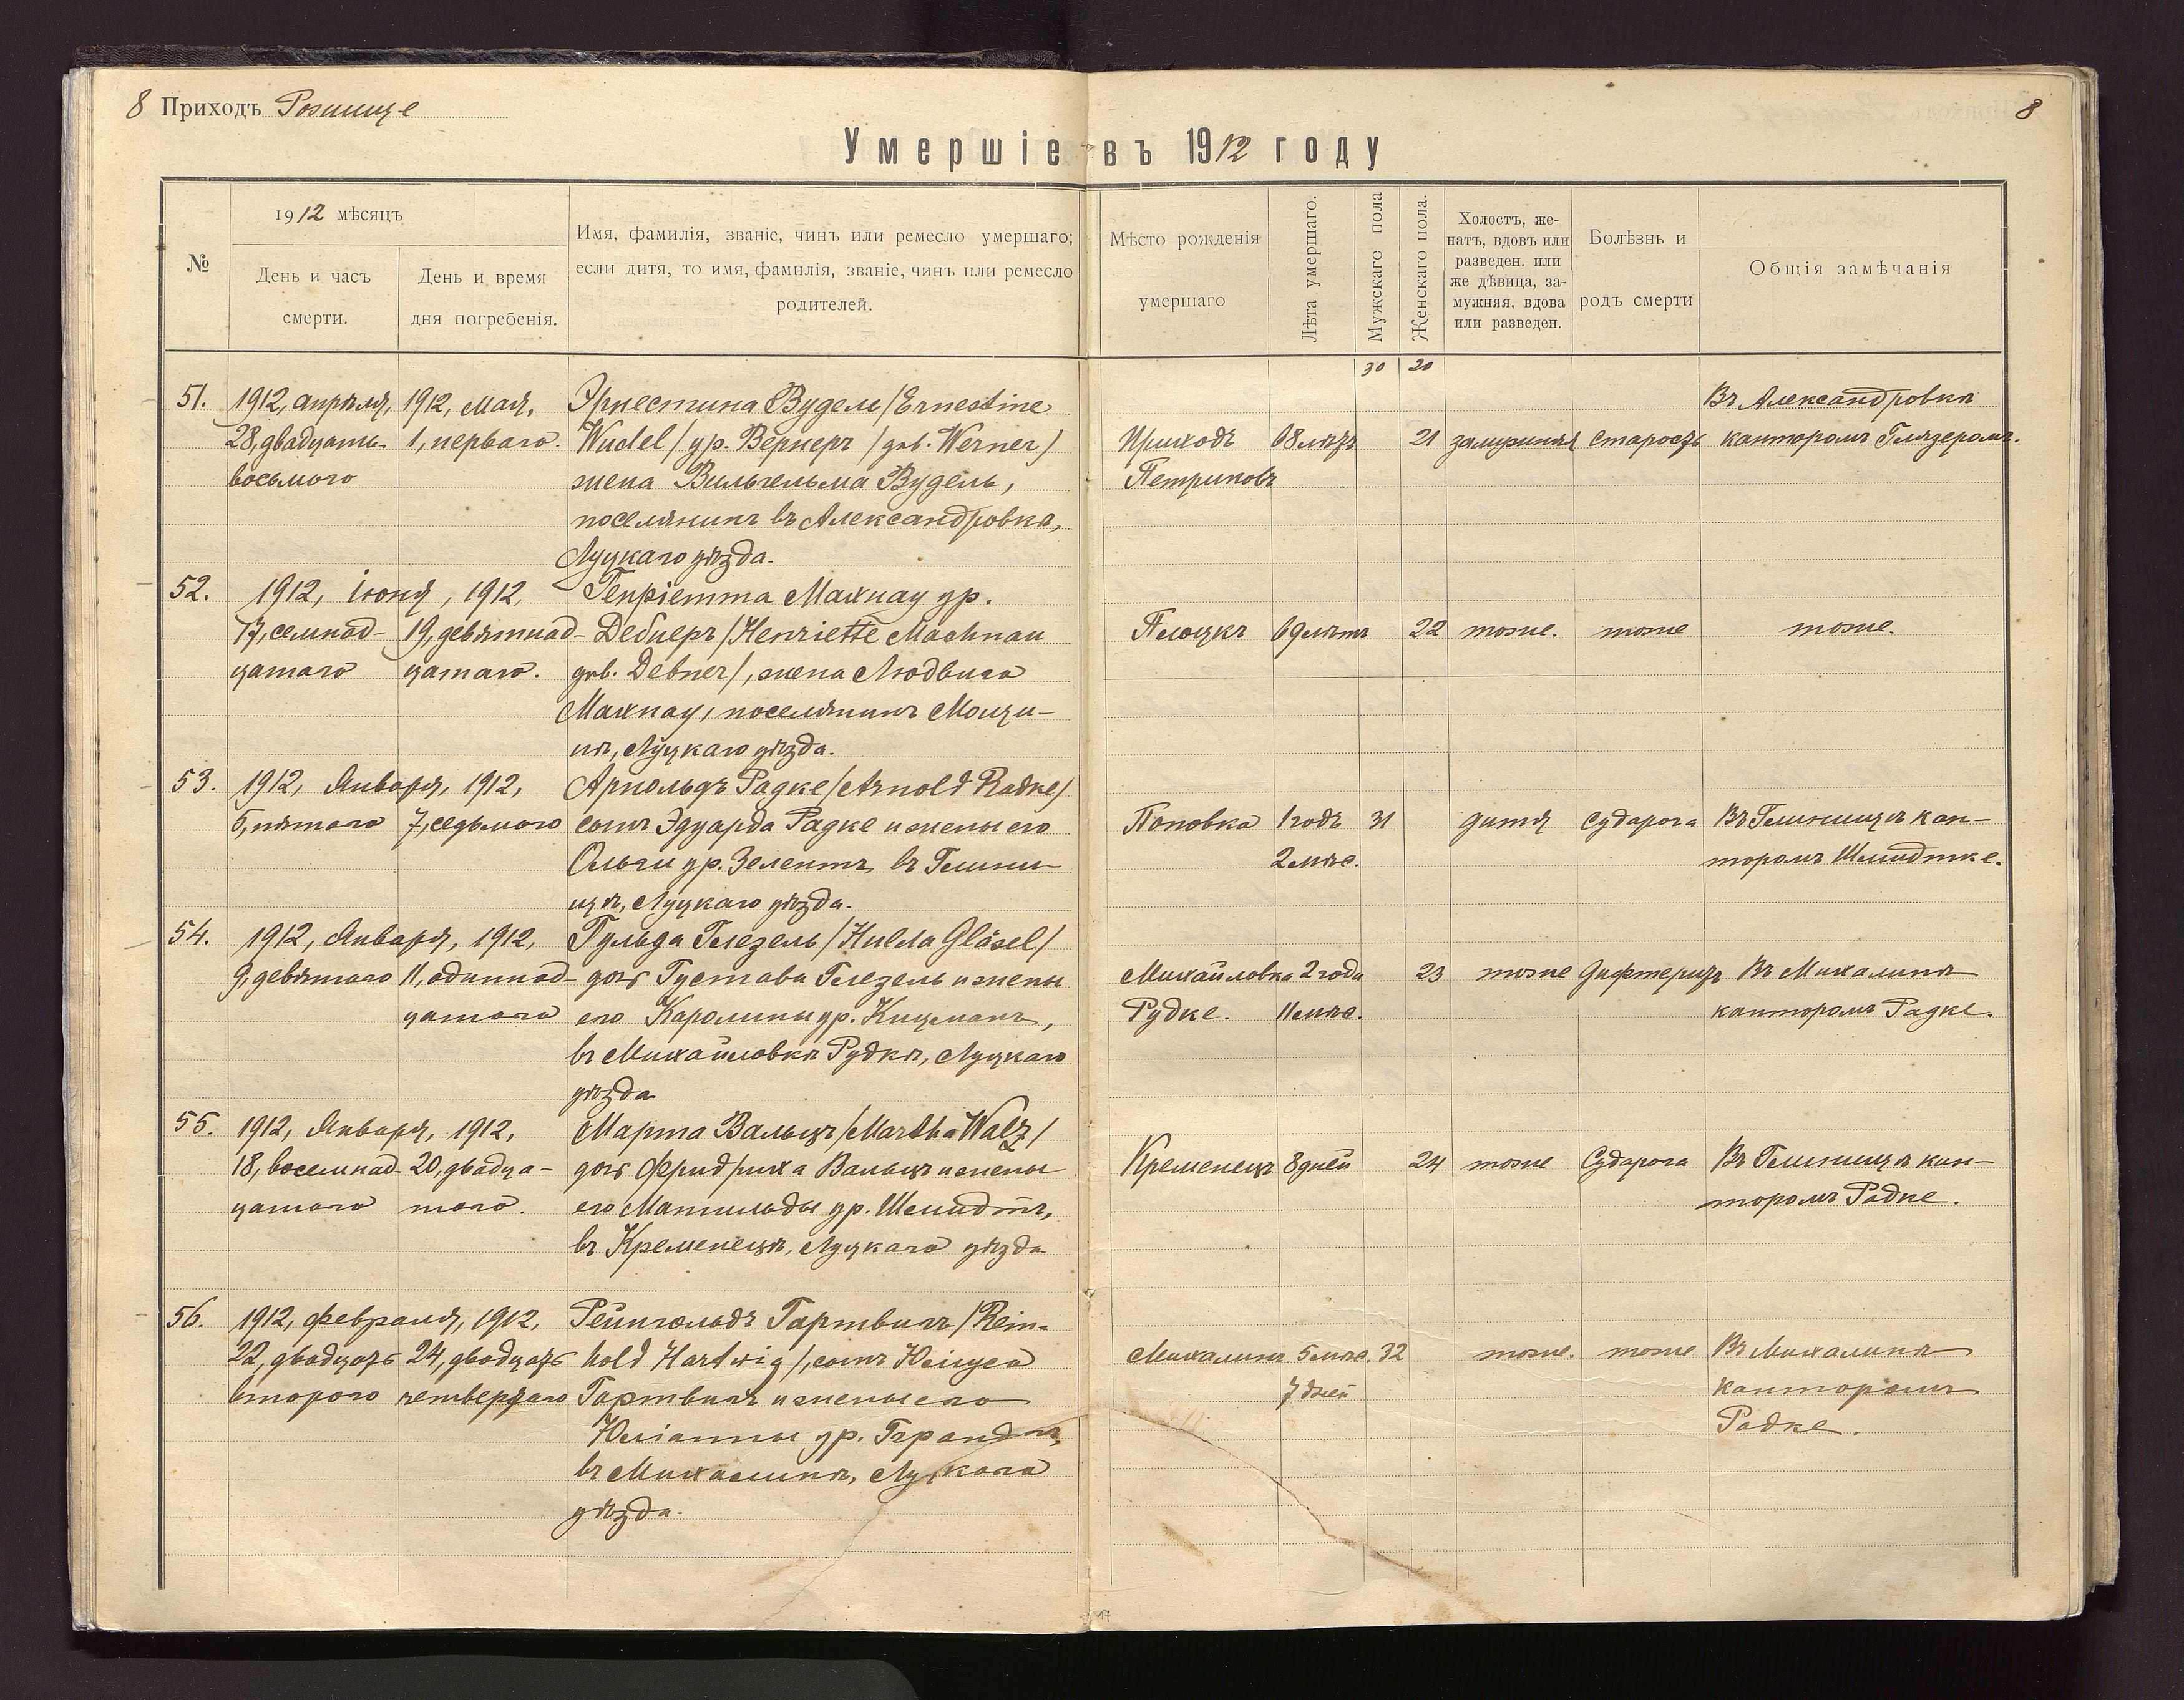 8 Приходъ Рожище
8
Умершіе въ 1912 году
№
1912 мѣсяцъ
День и часъ смерти.
День и время дня погребенія.
Имя, фамилія, званіе, чинъ или ремесло умершаго;
если дитя, то имя, фамилія, званіе, чинъ или ремесло
родителей.
Мѣсто рожденія
умершаго
Лѣта умершаго.
Мужскаго пола
Женскаго пола.
Холостъ, же-
натъ, вдовъ или
разведен. или
же дѣвица, за-
мужняя, вдова
или разведен.
Болѣзнь и
родъ смерти
Общія замѣчанія
30 20
51. 1912, апрѣля, 1912, мая, Эрнестина Вудель /Ernestine Въ Александровкѣ
28, двадцать 1, перваго. Wudel/ ур. Вернеръ /geb. Werner/ Приходъ 68 лѣтъ 21 замужняя старость канторомъ Глязеромъ.
восьмого жена Вильгельма Вудель, Петриковъ
поселянинъ въ Александровкѣ,
Луцкаго уѣзда.
52. 1912, іюня, 1912, Генріетта Махнау ур.
17, семнад- 19, девятнад- Дебнеръ /Henriette Machnau Плоцкъ 69 лѣтъ 22 тоже. тоже тоже.
цатаго цатаго. geb. Debner/, жена Людвига
Махнау, поселянинъ Мощи-
нѣ, Луцкаго уѣзда.
53. 1912, Января, 1912, Арнольдъ Радке /Arnold Radke/
5, пятаго 7, седьмого сынъ Эдуарда Радке и жены его Поповка 1 годъ 31 дитя Судорога Въ Глинищѣ кан-
Ольги ур. Зелентъ, въ Глини- 2 мѣс. торомъ Шмидтке.
щѣ, Луцкаго уѣзда.
54. 1912, Января, 1912, Гульда Глезель /Hulda Gläsel/
9, девятаго 11, одиннад- дочь Густава Глезель и жены Михайловка 2 года 23 тоже дифтеритъ Въ Михалинѣ
цатаго его Каролины ур. Кицманъ, Рудке. 11 мѣс. канторомъ Радке.
въ Михайловкѣ Рудкѣ, Луцкаго
уѣзда
55. 1912, Января, 1912, Марта Вальцъ /Martha Walz/
18, восемнад- 20, двадца- дочь Фридриха Вальцъ и жены Кременецъ 8 дней 24 тоже Судорога Въ Глинищѣ кан-
цатаго таго. его Матильды ур. Шмидтъ, торомъ Радке.
въ Кременецѣ, Луцкаго уѣзда
56. 1912, февраля, 1912, Рейнгольдъ Гартвигъ /Rein-
22, двадцать 24, двадцать hold Hartwig/, сынъ Юліуса Михалинъ 5 мѣс. 32 тоже. тоже Въ Михалинѣ
второго четвертаго Гартвигъ и жены его 7 дней канторомъ
Юліанны ур. Радке.
въ Михалинѣ, Луцкаго
уѣзда.
17